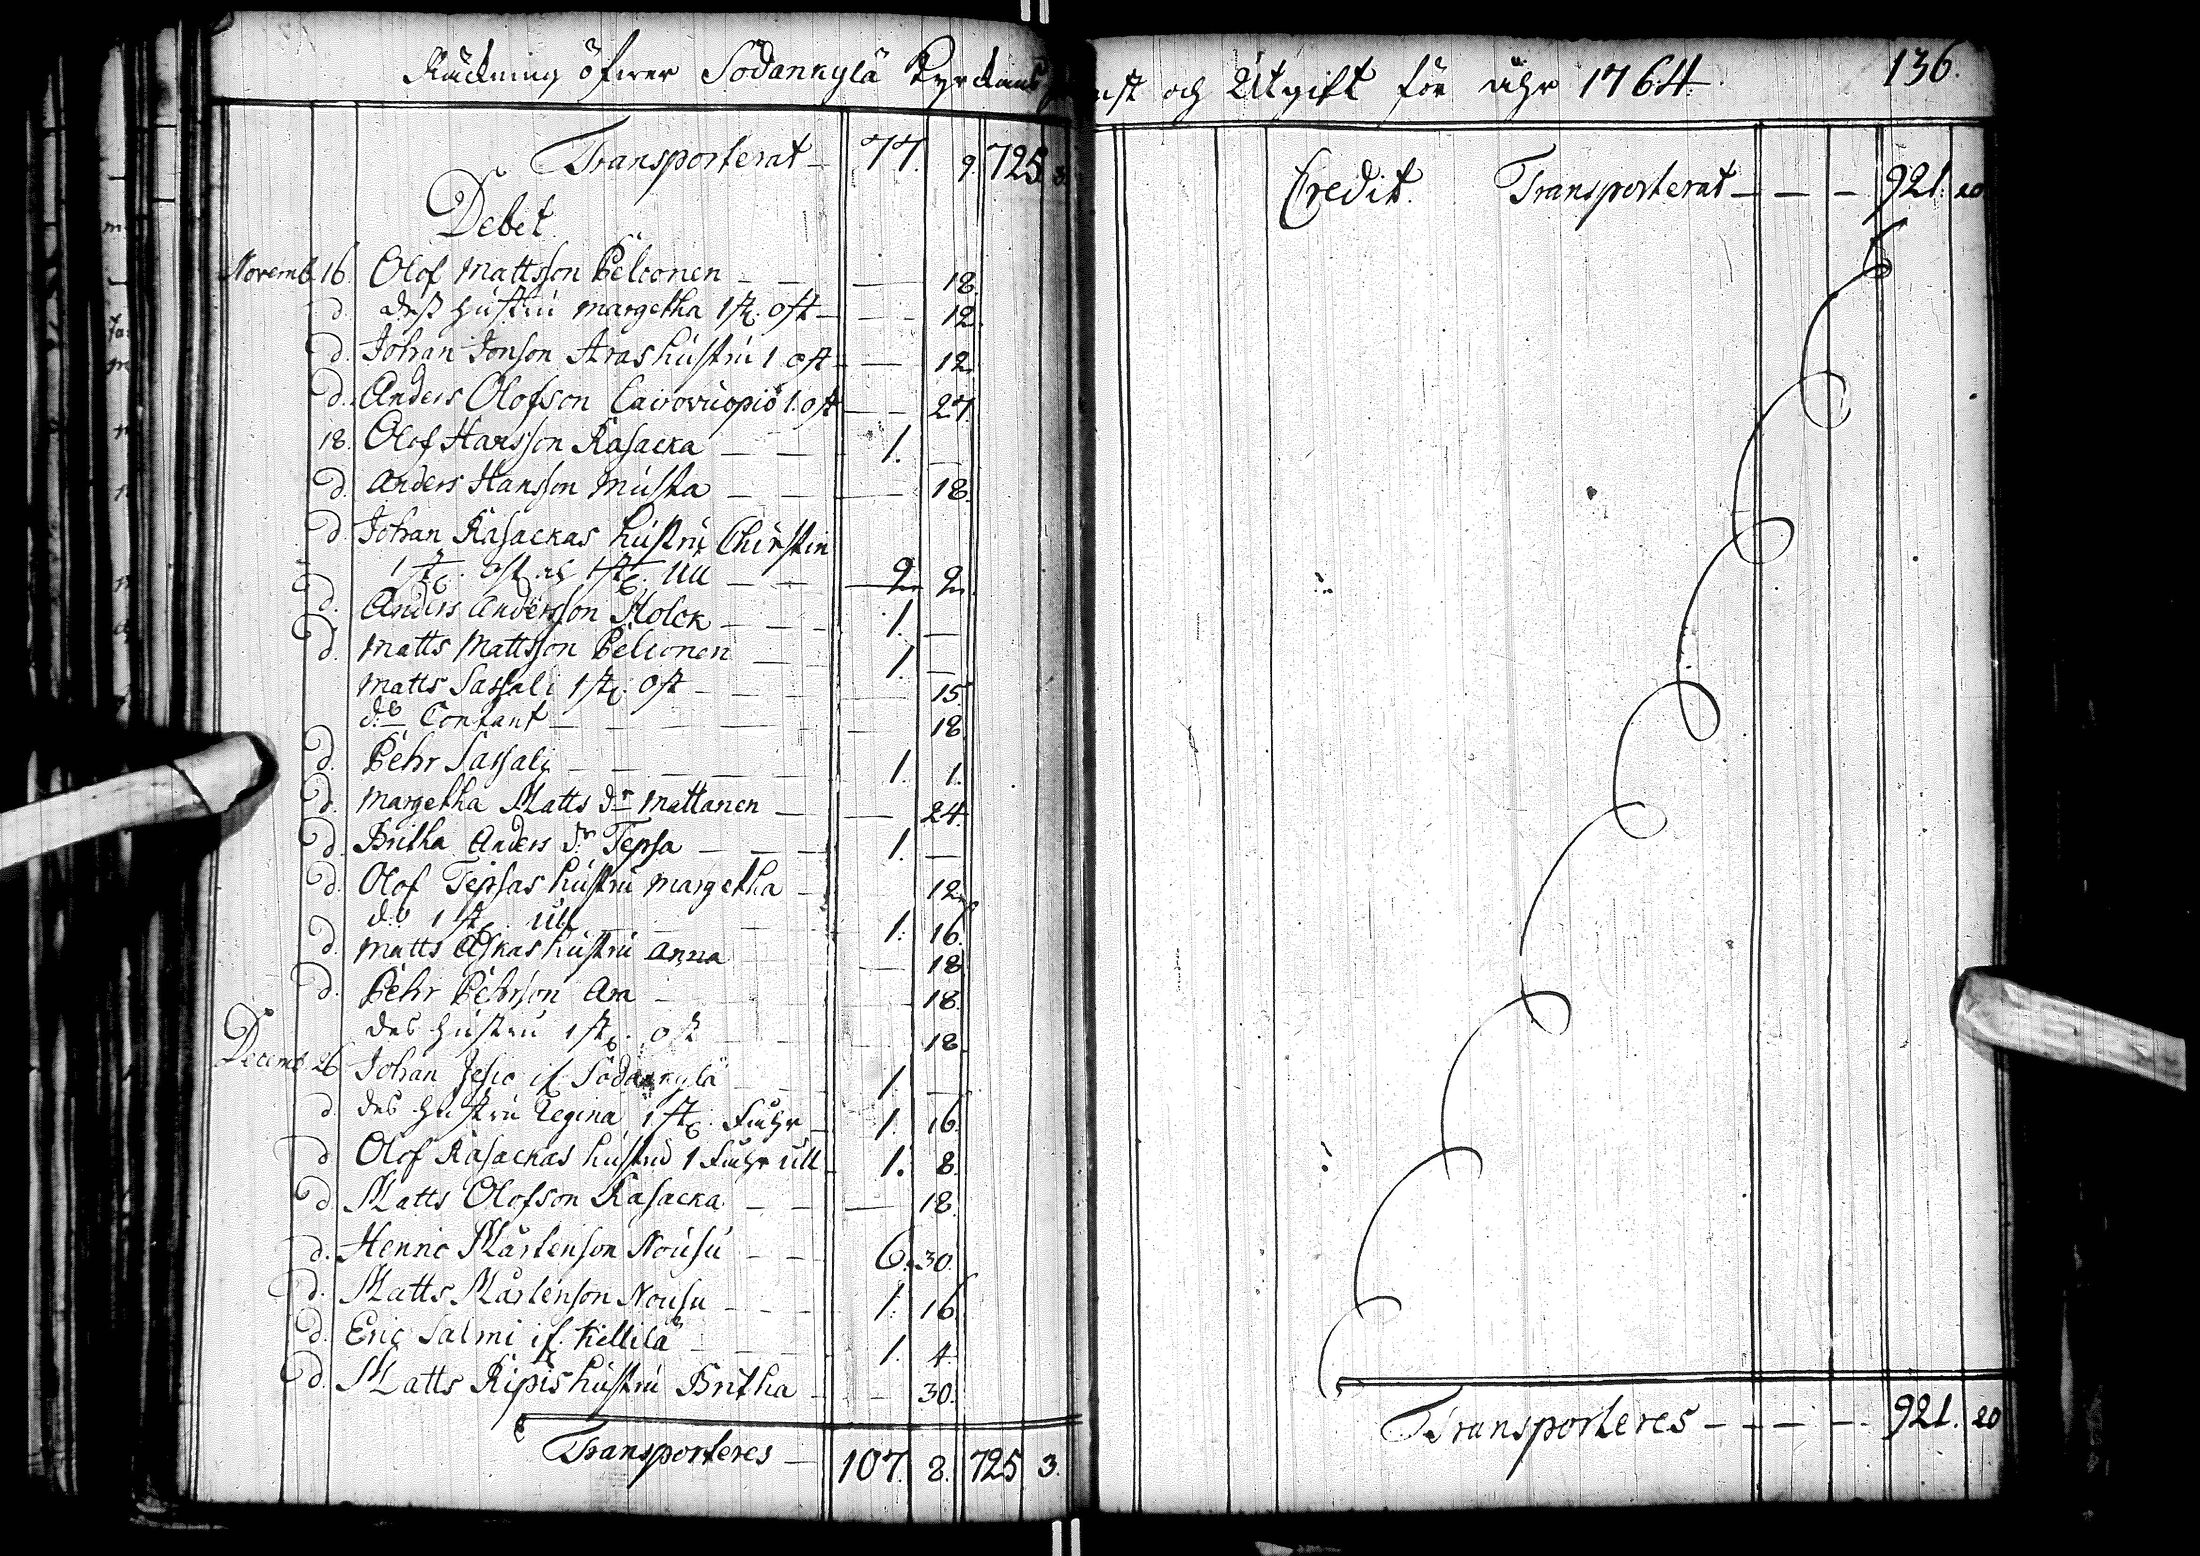 Räckning öfwer Sodankylä Kyrckans
Transporterat — 77. 9. 725 3.
Debet.
Novemb. 16. Olof Mattsson Pelconen — — 18.
d. dess hustru Margetha 1 st. ost — — 12.
d. Johan Jonson Aras hustru 1 ost — — 12.
d. Anders Olofson Cairovuopio 1. ost — — 27.
18. Olof Hansson Kasacka — — 1. —
d. Anders Hansson Musta — — — 18.
d. Johan Kasackas hustru Chirstin
1 st. ost och 1 st. Ull — — 2. 2.
d. Anders Andersson Molck — — 1. —
d. Matts Mattsson Pelconen — — 1. —
Matts Sassali 1 st. Ost — — — 15.
d:o Contant — — — — 18.
d. Pehr Sassali — — — — 1. 1.
d. Margetha Matts dr Mattanen — — 24.
d. Britha Anders dr Tepsa — — — 1. —
d. Olof Tepsas hustru Margetha — 12.
d:o 1 st. Ull — — 1. 16.
d. Matts Askas hustru Anna — 18.
d. Pehr Pehrson Ara — — — 18.
des hustru 1 st. ost — — 18.
Decemb. 26. Johan Jesio if. Sodankylä — 1. —
d. des hustru Regina 1 st. Fuhr — 1. 16.
d. Olof Kasackas hustru 1 Fuhr ull — 1. 8.
d. Matts Olofson Kasacka — — — 18.
d. Henric Mårtenson Nousu — — 6. 30.
d. Matts Mårtenson Nousu — — 1. 16.
d. Eric Salmi if. Kittilä — — 1. 4.
d. Matts Ripis hustru Britha — — 30.
Transporteres — 107. 8. 725 3.
och Utgift för åhr 1764. 136.
Credit. Transporterat — — — 921. 20
Transporteres — — — — 921. 20